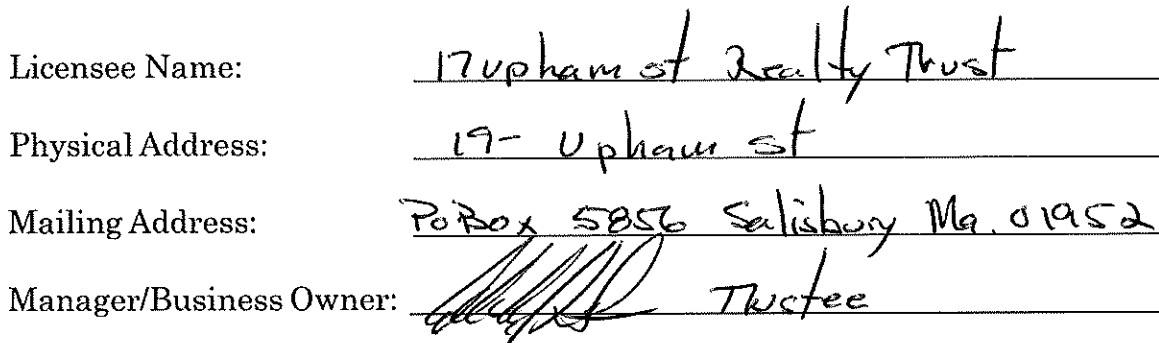 Licensee Name: 17 Upham st Realty Trust
Physical Address: 19- Upham st
Mailing Address: Po Box 5856 Salisbury Ma. 01952
Manager/Business Owner: Trustee